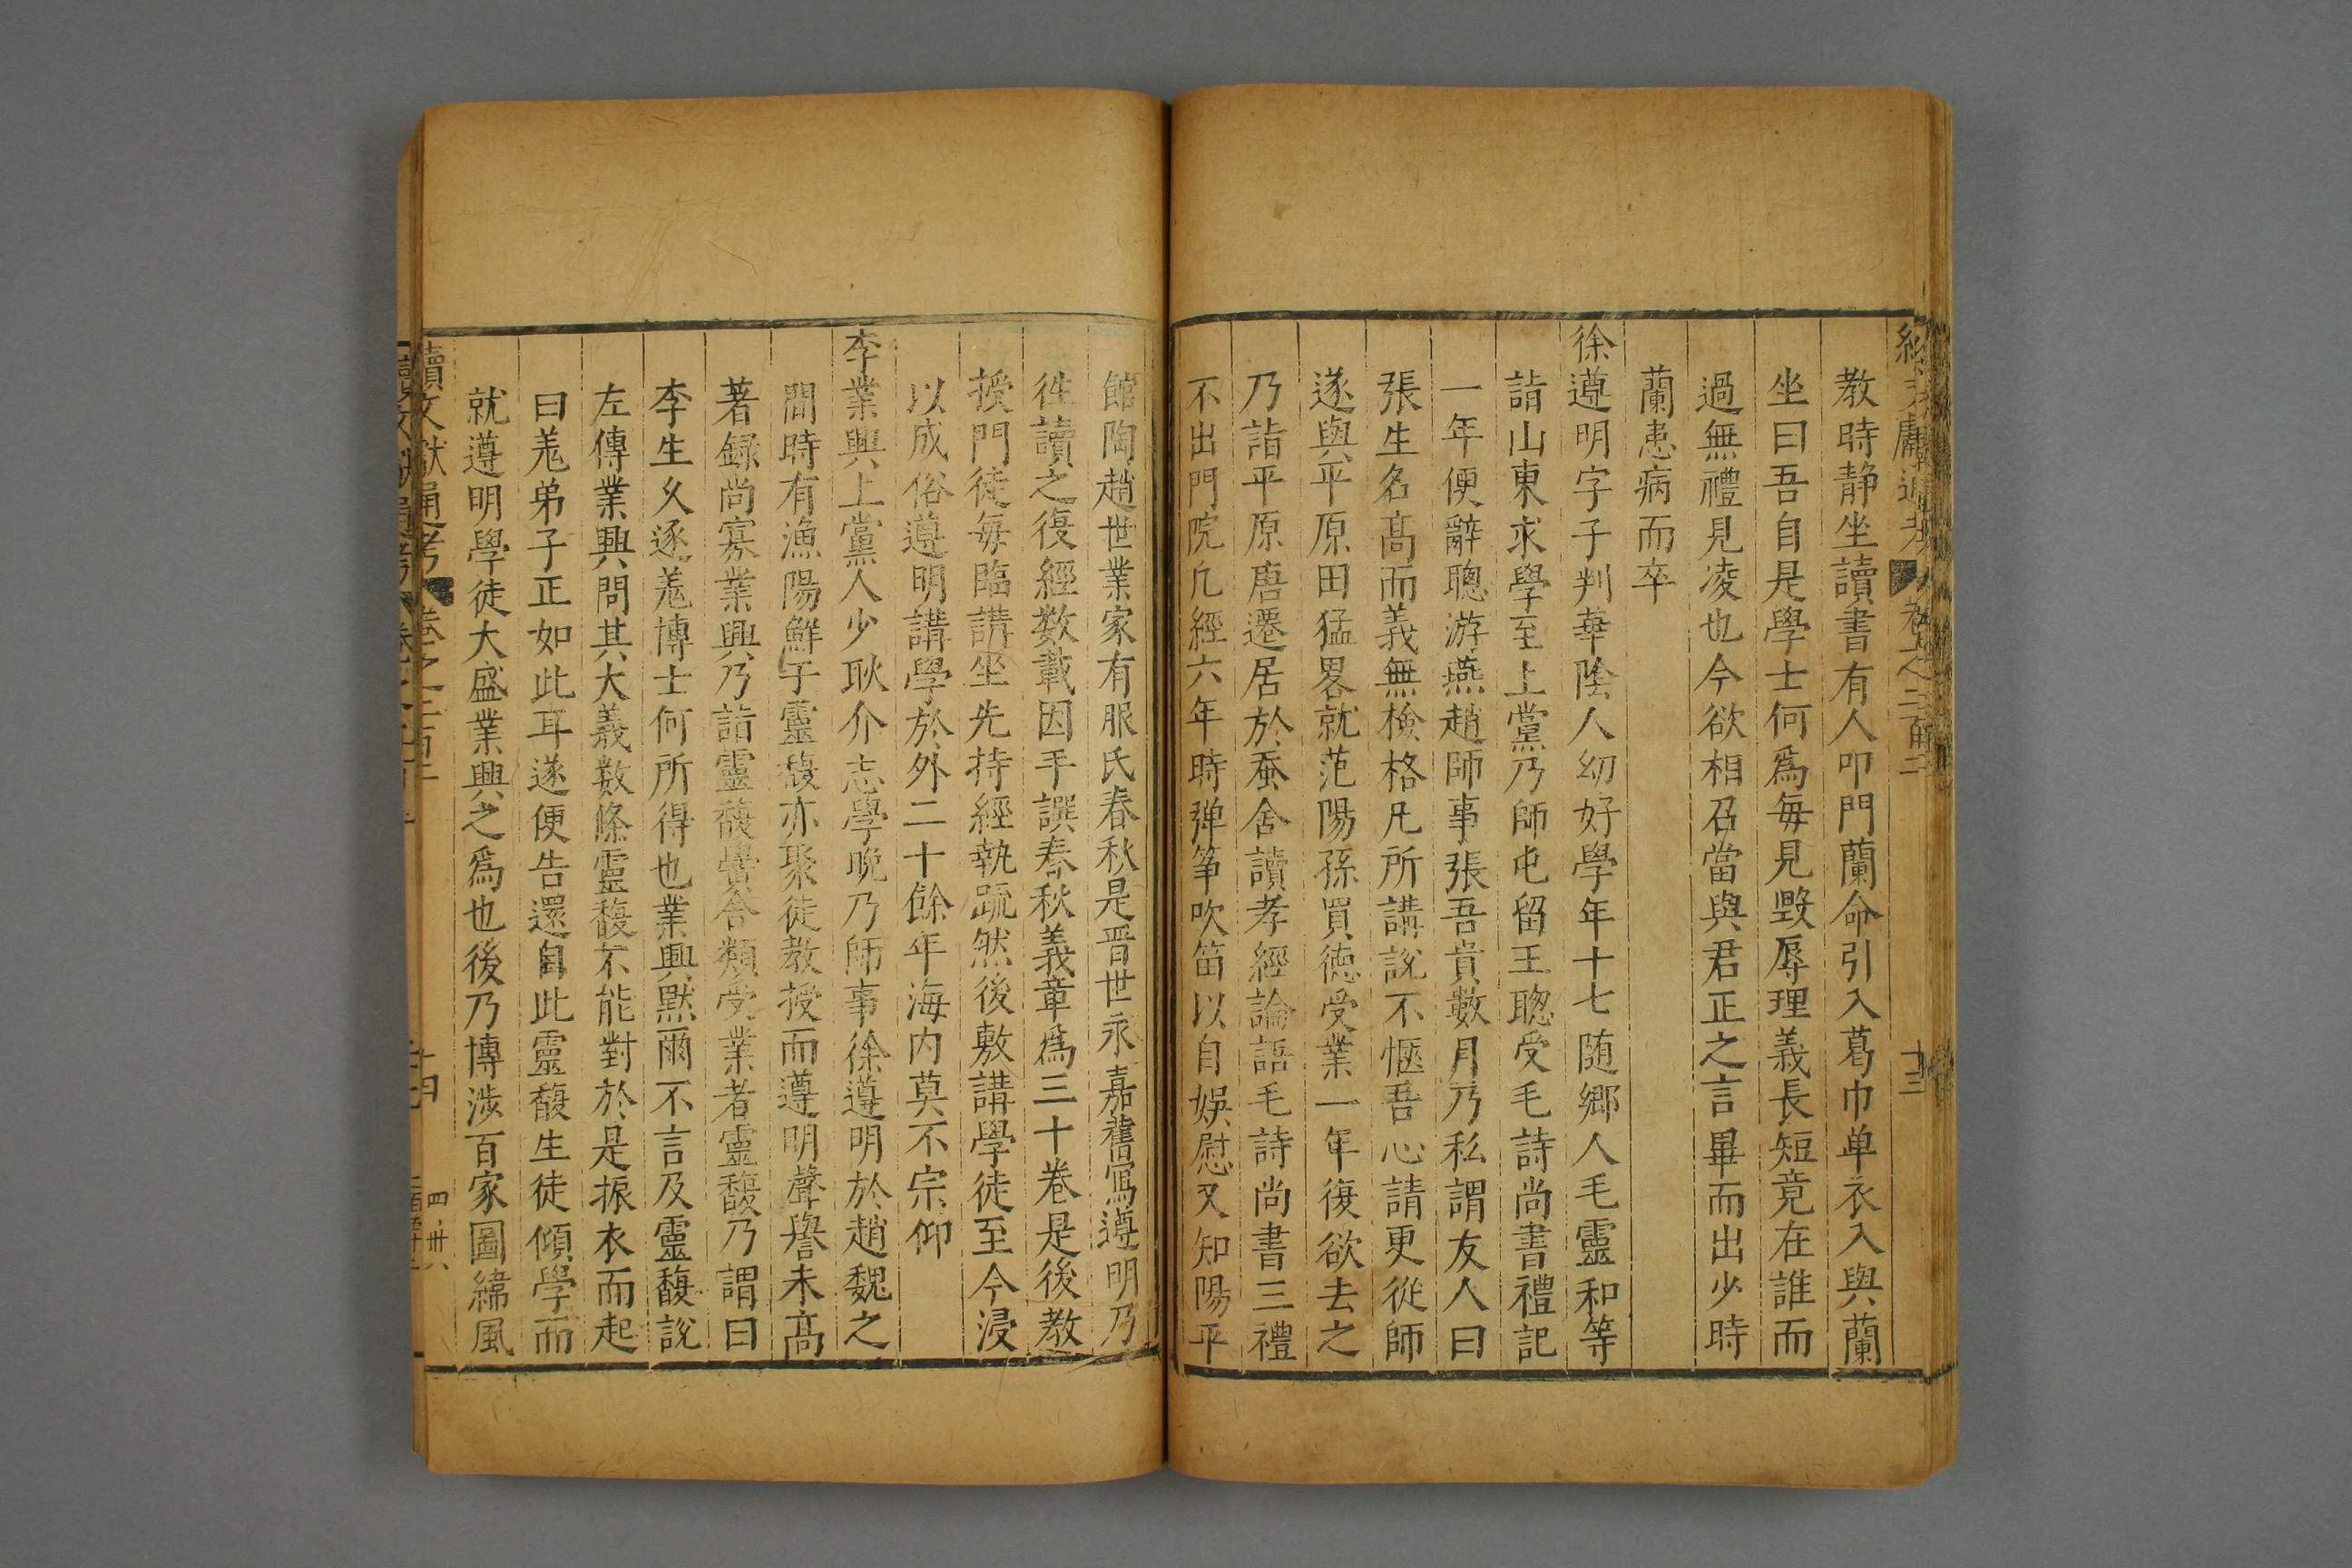 教時静坐讀書有人叩門蘭命引入葛巾单衣入與蘭
坐曰吾自是學士何爲毎見毀辱理義長短竟在誰而
過無禮見凌也今欲相召當與君正之言畢而出少時
蘭患病而卒
徐遵明字子判華陰人幼好學年十七随鄉人毛靈和等
詣山東求學至上黨乃師屯留王聰受毛詩尚書禮記
一年便辭聰游燕趙師事張吾貴數月乃私謂友人曰
張生名髙而義無檢格凡所講説不愜吾心請更從師
遂與平原田猛畧就范陽孫買徳受業一年復欲去之
乃詣平原唐遷居於蚕舍讀孝經論語毛詩尚書三禮
不出門院凡經六年時弹筝吹笛以自娯慰又知陽平
館陶趙世業家有服氏春秋是晋世永嘉舊寫遵明乃
徃讀之復經数載因手譔春秋義章爲三十卷是後教
授門徒毎臨講坐先持經執疏然後敷講學徒至今浸
以成俗遵明講學於外二十餘年海内莫不宗仰
李業興上黨人少耿介志學晚乃師事徐遵明於趙魏之
間時有漁陽鮮于靈馥亦聚徒教授而遵明聲譽未髙
著録尚寡業興乃詣靈馥黌舍類受業者靈馥乃謂曰
李生乆逐羗博士何所得也業興黙爾不言及靈馥説
左傳業興問其大義數條靈馥不能對於是振衣而起
曰羗弟子正如此耳遂便告還自此靈馥生徒傾學而
就遵明學徒大盛業興之爲也後乃博涉百家圖緯風
續文獻通考 卷之二百二